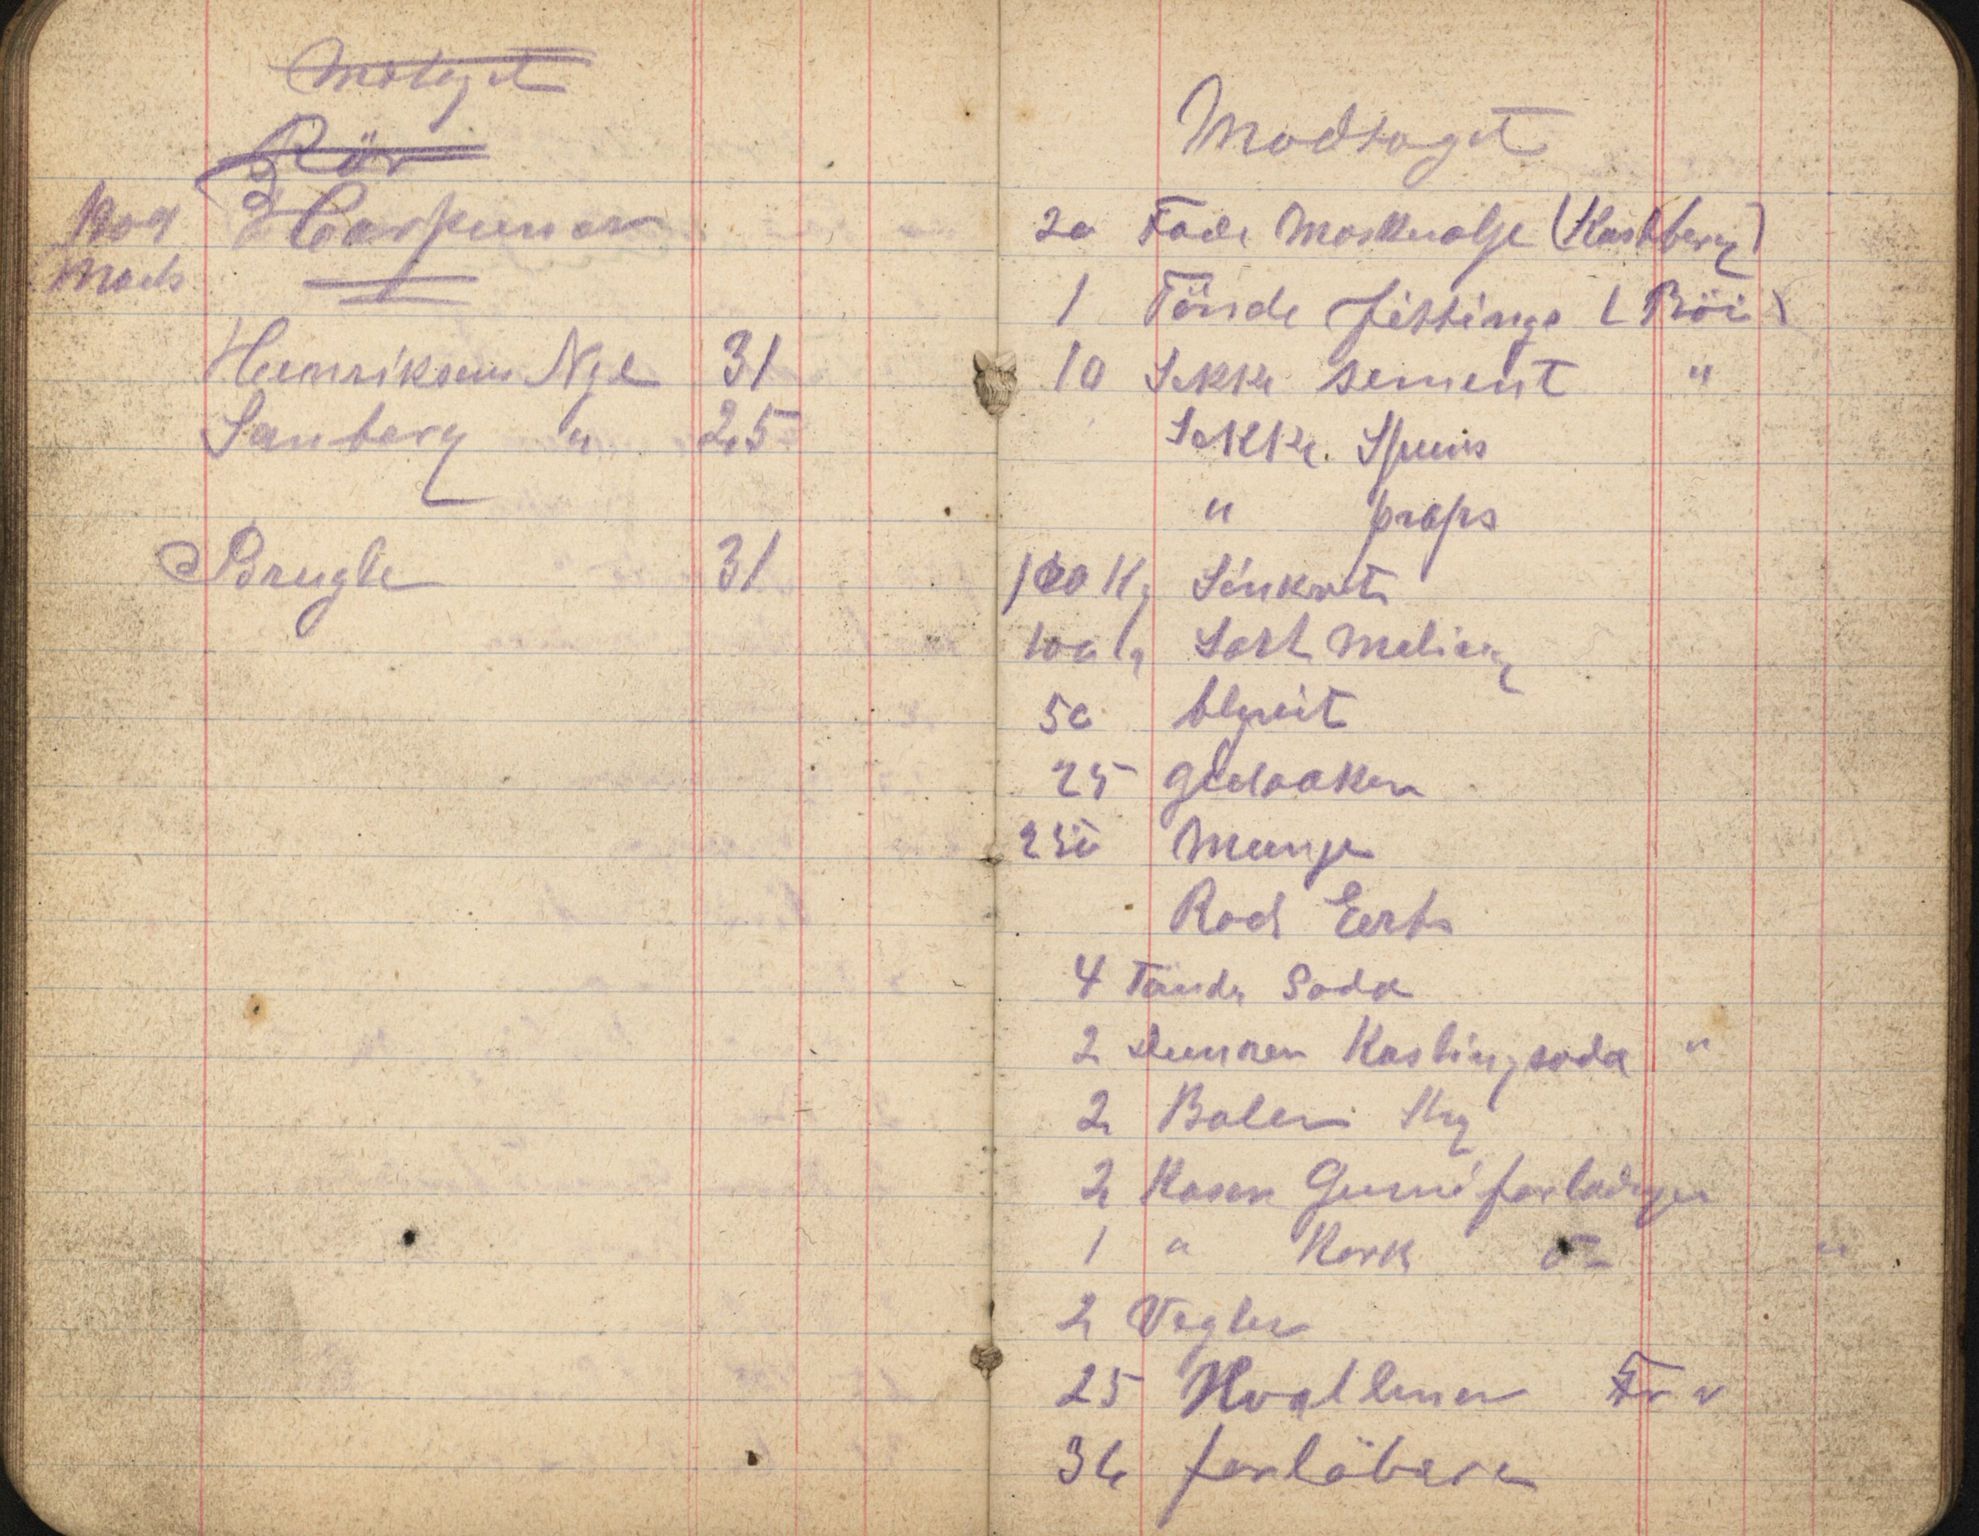 Motaget
Rör
1209 Harpuner
Mods
Henriksens Nye 31
Sanberg " 25
Brugte 31
Modtaget
20 Fade Maskinolje (Kastberg)
1 Tönde fittings (Böi)
10 Sekke sement "
Sekke Spuns
" props
100 Kg Sinkvit
100 Kg Sort Meling
50 blyvit
25 gulooker
250 Mønje
Rød Eert
4 Tønde Soda
2 Dunker Kastingsoda "
2 Baler Sky
2 Kasser Gumiforladnger
1 " Kork do "
2 Vegler
25 Hvalliner Fr v
36 forlöbere